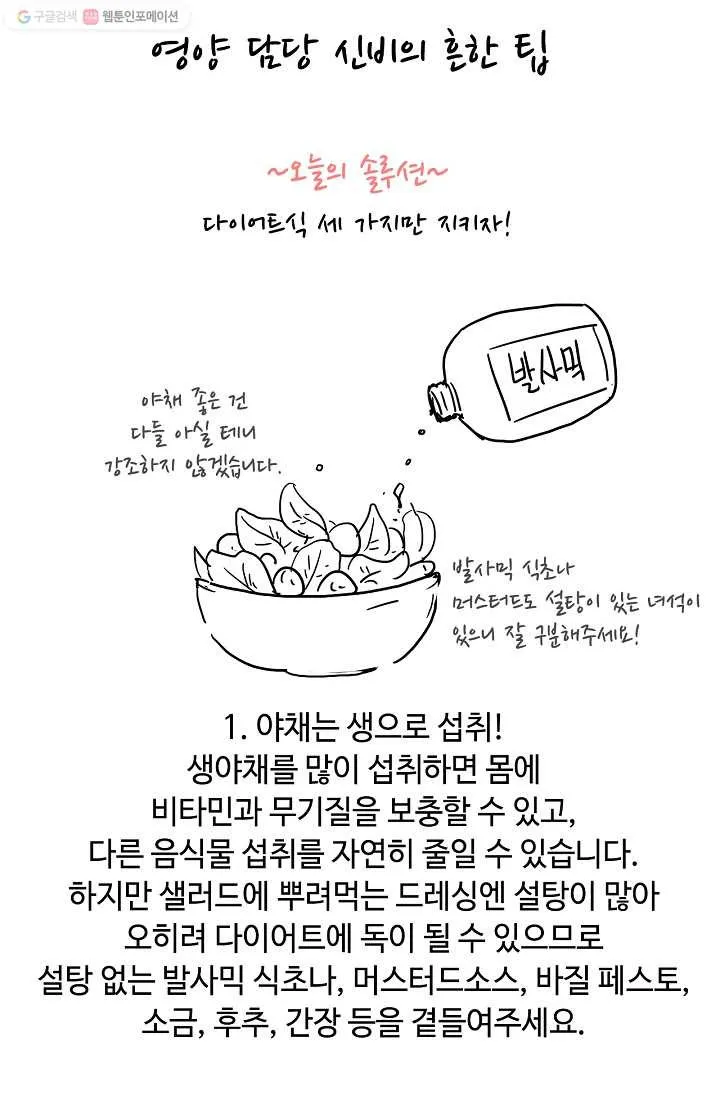 구글검색 웹툰인포메이션
영양 담당 신비의 흔한 팁
~오늘의 솔루션~
다이어트식 세 가지만 지키자!
발사믹
야채 좋은 건
다들 아실 테니
강조하지 않겠습니다.
발사믹 식초나
머스터드도 설탕이 있는 녀석이
있으니 잘 구분해주세요!
1. 야채는 생으로 섭취!
생야채를 많이 섭취하면 몸에
비타민과 무기질을 보충할 수 있고,
다른 음식물 섭취를 자연히 줄일 수 있습니다.
하지만 샐러드에 뿌려먹는 드레싱엔 설탕이 많아
오히려 다이어트에 독이 될 수 있으므로
설탕 없는 발사믹 식초나, 머스터드소스, 바질 페스토,
소금, 후추, 간장 등을 곁들여주세요.